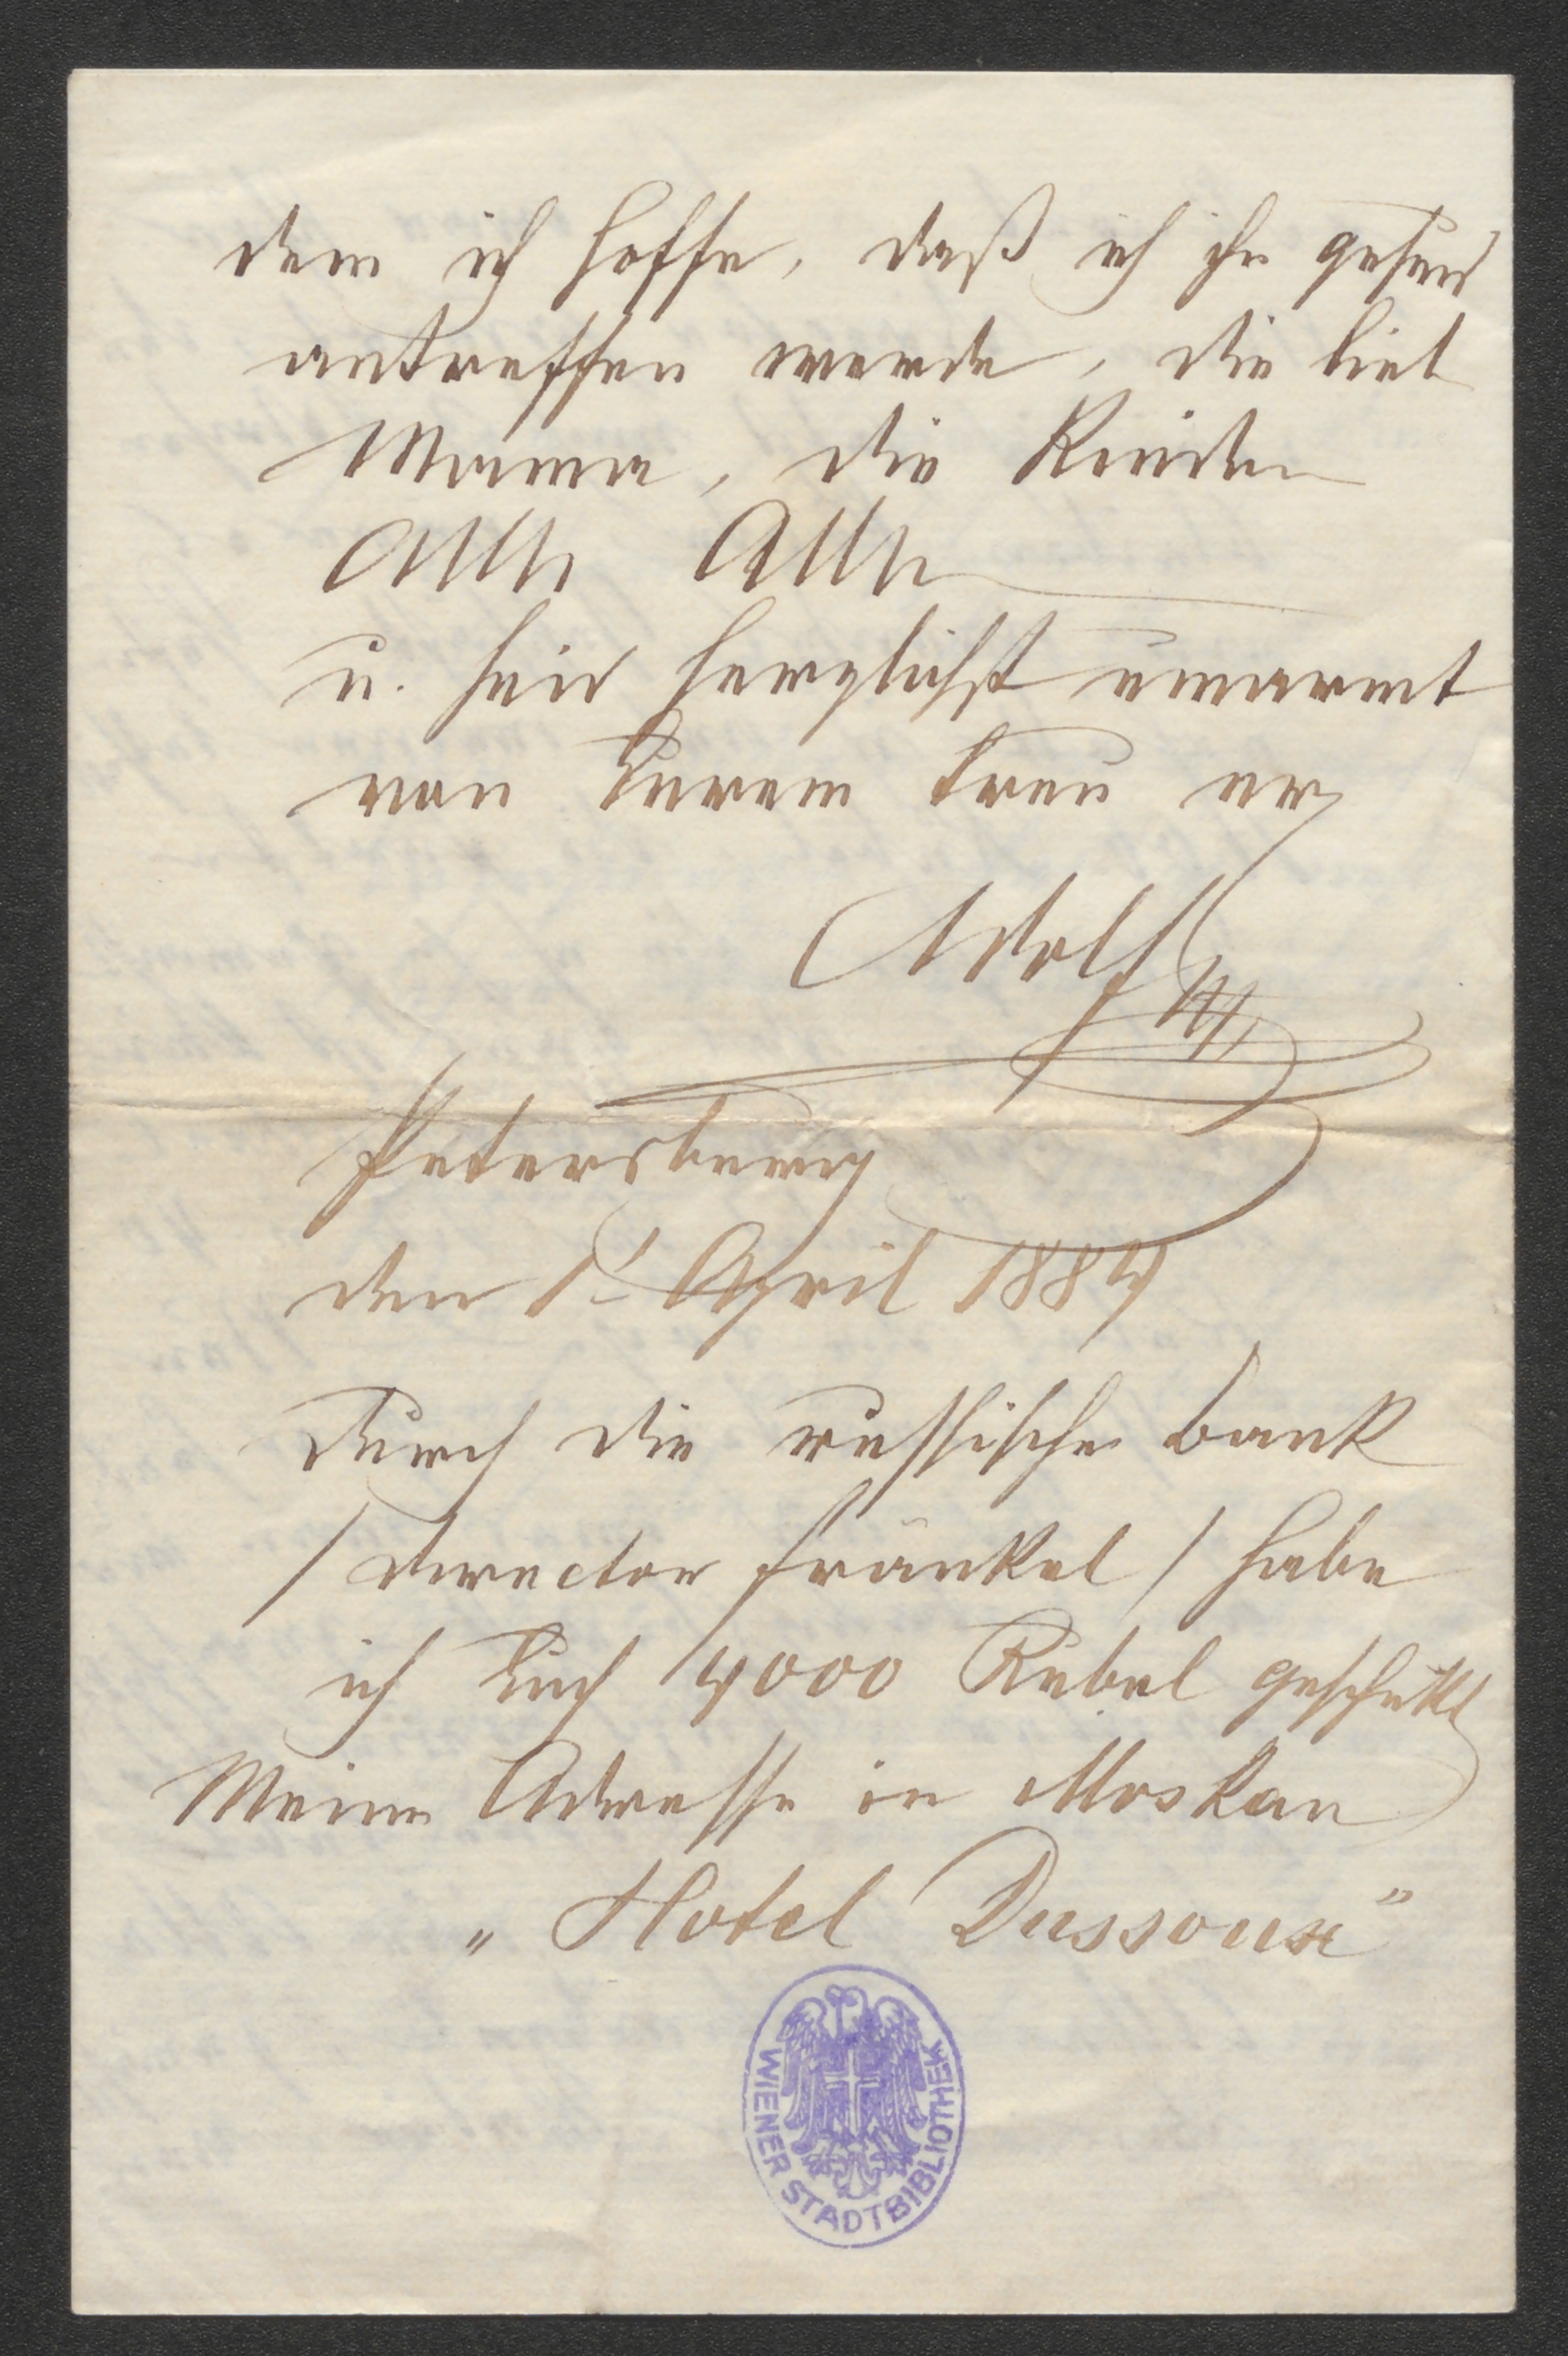 dem ich hoffe, daß ich ihn gesund
antreffen werde, die lieb
Mama, die Kinder
Alle Alle
u. seid herzlichst umarmt
von Eurem treuen
Adolf
Petersburg
den 1t April 1884
Durch die russische Bank
/ Director Fränkel / habe
ich Euch 4000 Rubel geschickt
Meine Adresse in Moskau
„ Hotel Dussoux "
WIENER STADTBIBLIOTHEK